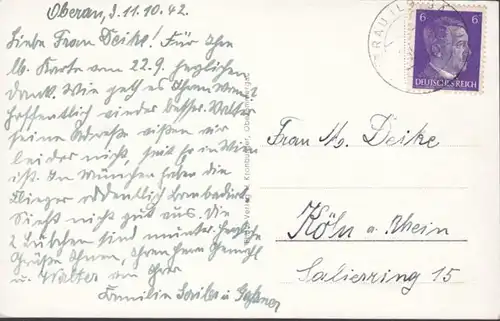 Oberau, d. 11.10.42.
Liebe Frau Deike! Für Ihre
lb. Karte vom 22.9. herzlichen
Dank. Wie geht es Ihrem
Hoffentlich wieder besser. Walter
seine Adresse wissen wir
leider nicht, seit er in Wien
ist. In München haben die
Flieger ordentlich bombadiert
Sieht nicht gut aus. Die
2 sind munter. Herzliche
Grüße Ihnen, Ihrem Herrn Gemahl
u. Walter von Ihrer
Familie
6 6
DEUTSCHES REICH
Frau M. Deike
Köln a. Rhein
Salierring 15